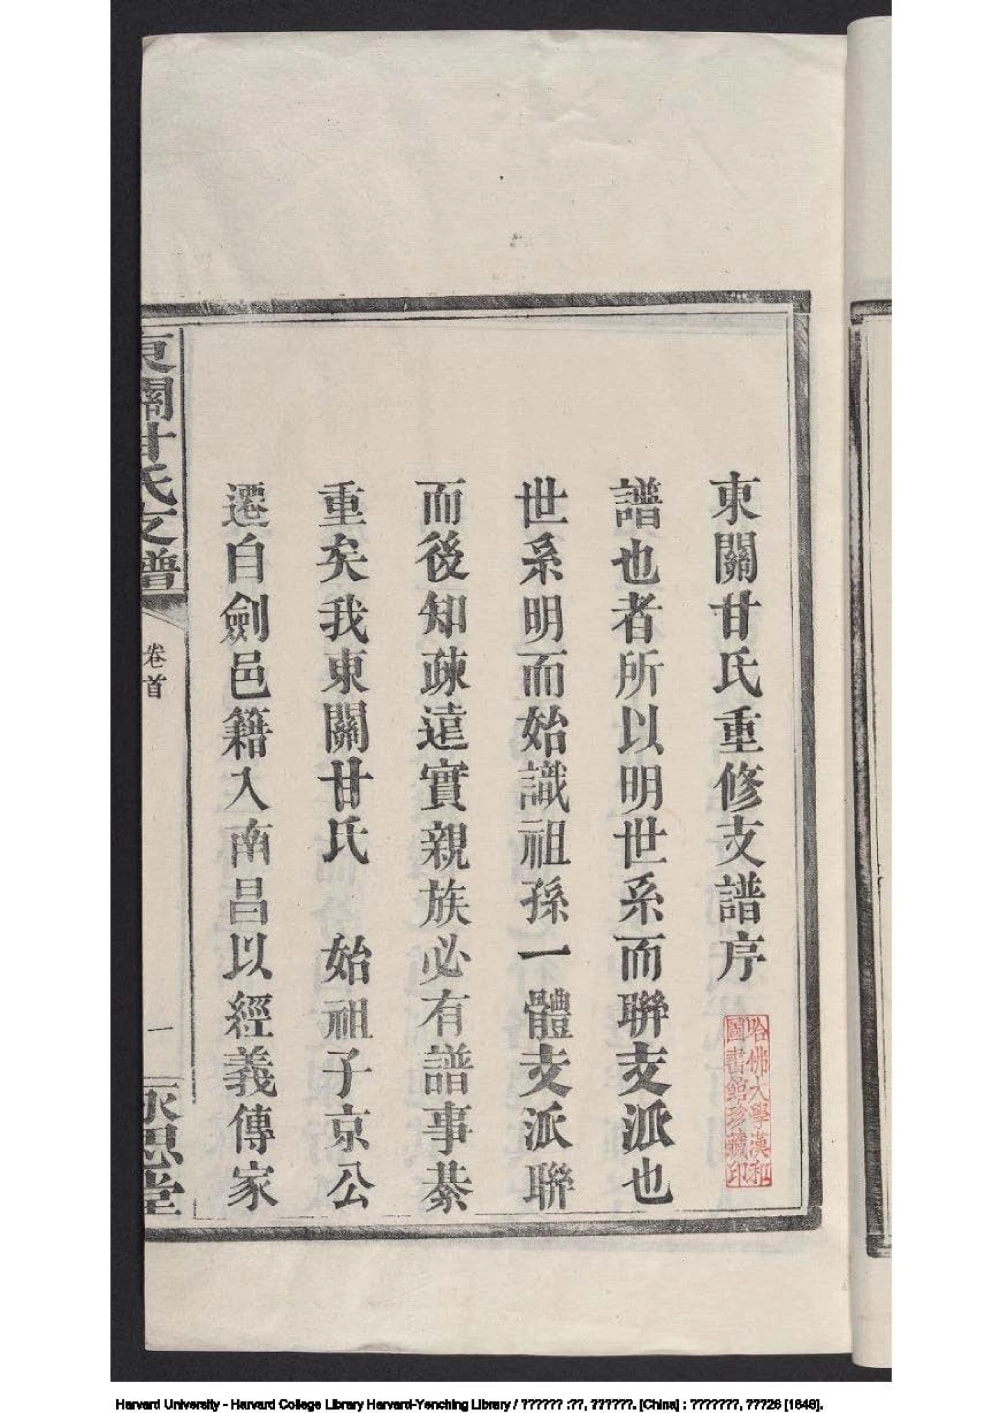 東關甘氏重修支譜序
譜也者所以明世系而聯支派也
世系明而始識祖孫一體支派聯
而後知疎遠實親族必有譜事綦
重矣我東關甘氏 始祖子京公
遷自劍邑籍入南昌以經義傳家
哈佛大學漢和
圖書館珍藏印
東關甘氏支譜
卷首
一
永思堂
Harvard University - Harvard College Library Harvard-Yenching Library / ?????? :??, ??????. [China] : ???????, ???26 [1846].